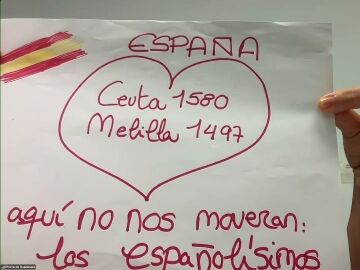 ESPAÑA
Ceuta 1580
Melilla 1497
aquí no nos moveran:
los españolísimos